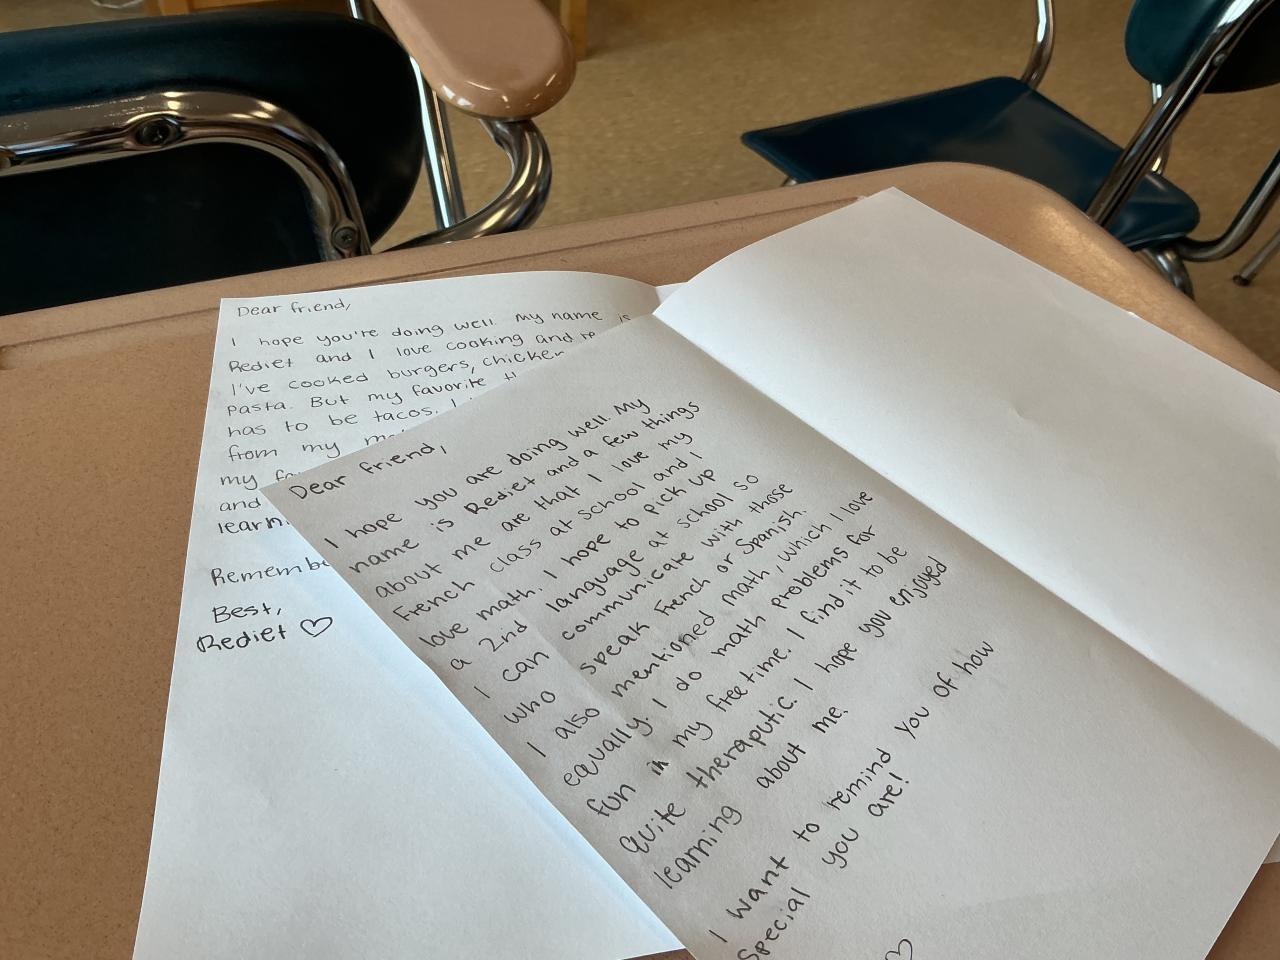 Dear friend,
I hope you're doing well. My name is
Rediet and I love cooking and
I've cooked burgers, chicken
pasta. But my favorite
has to be tacos. I
from my
my
and
learn
Remembe
Best,
Rediet ♡
Dear friend,
I hope you are doing well. My
name is Rediet and a few things
about me are that I love my
French class at school and I
love math. I hope to pick up
a 2nd language at school so
I can communicate with those
who speak French or Spanish.
I also mentioned math, which I love
equally. I do math problems for
fun in my free time. I find it to be
quite theraputic. I hope you enjoyed
learning about me.
I want to remind you of how
special you are!
♡